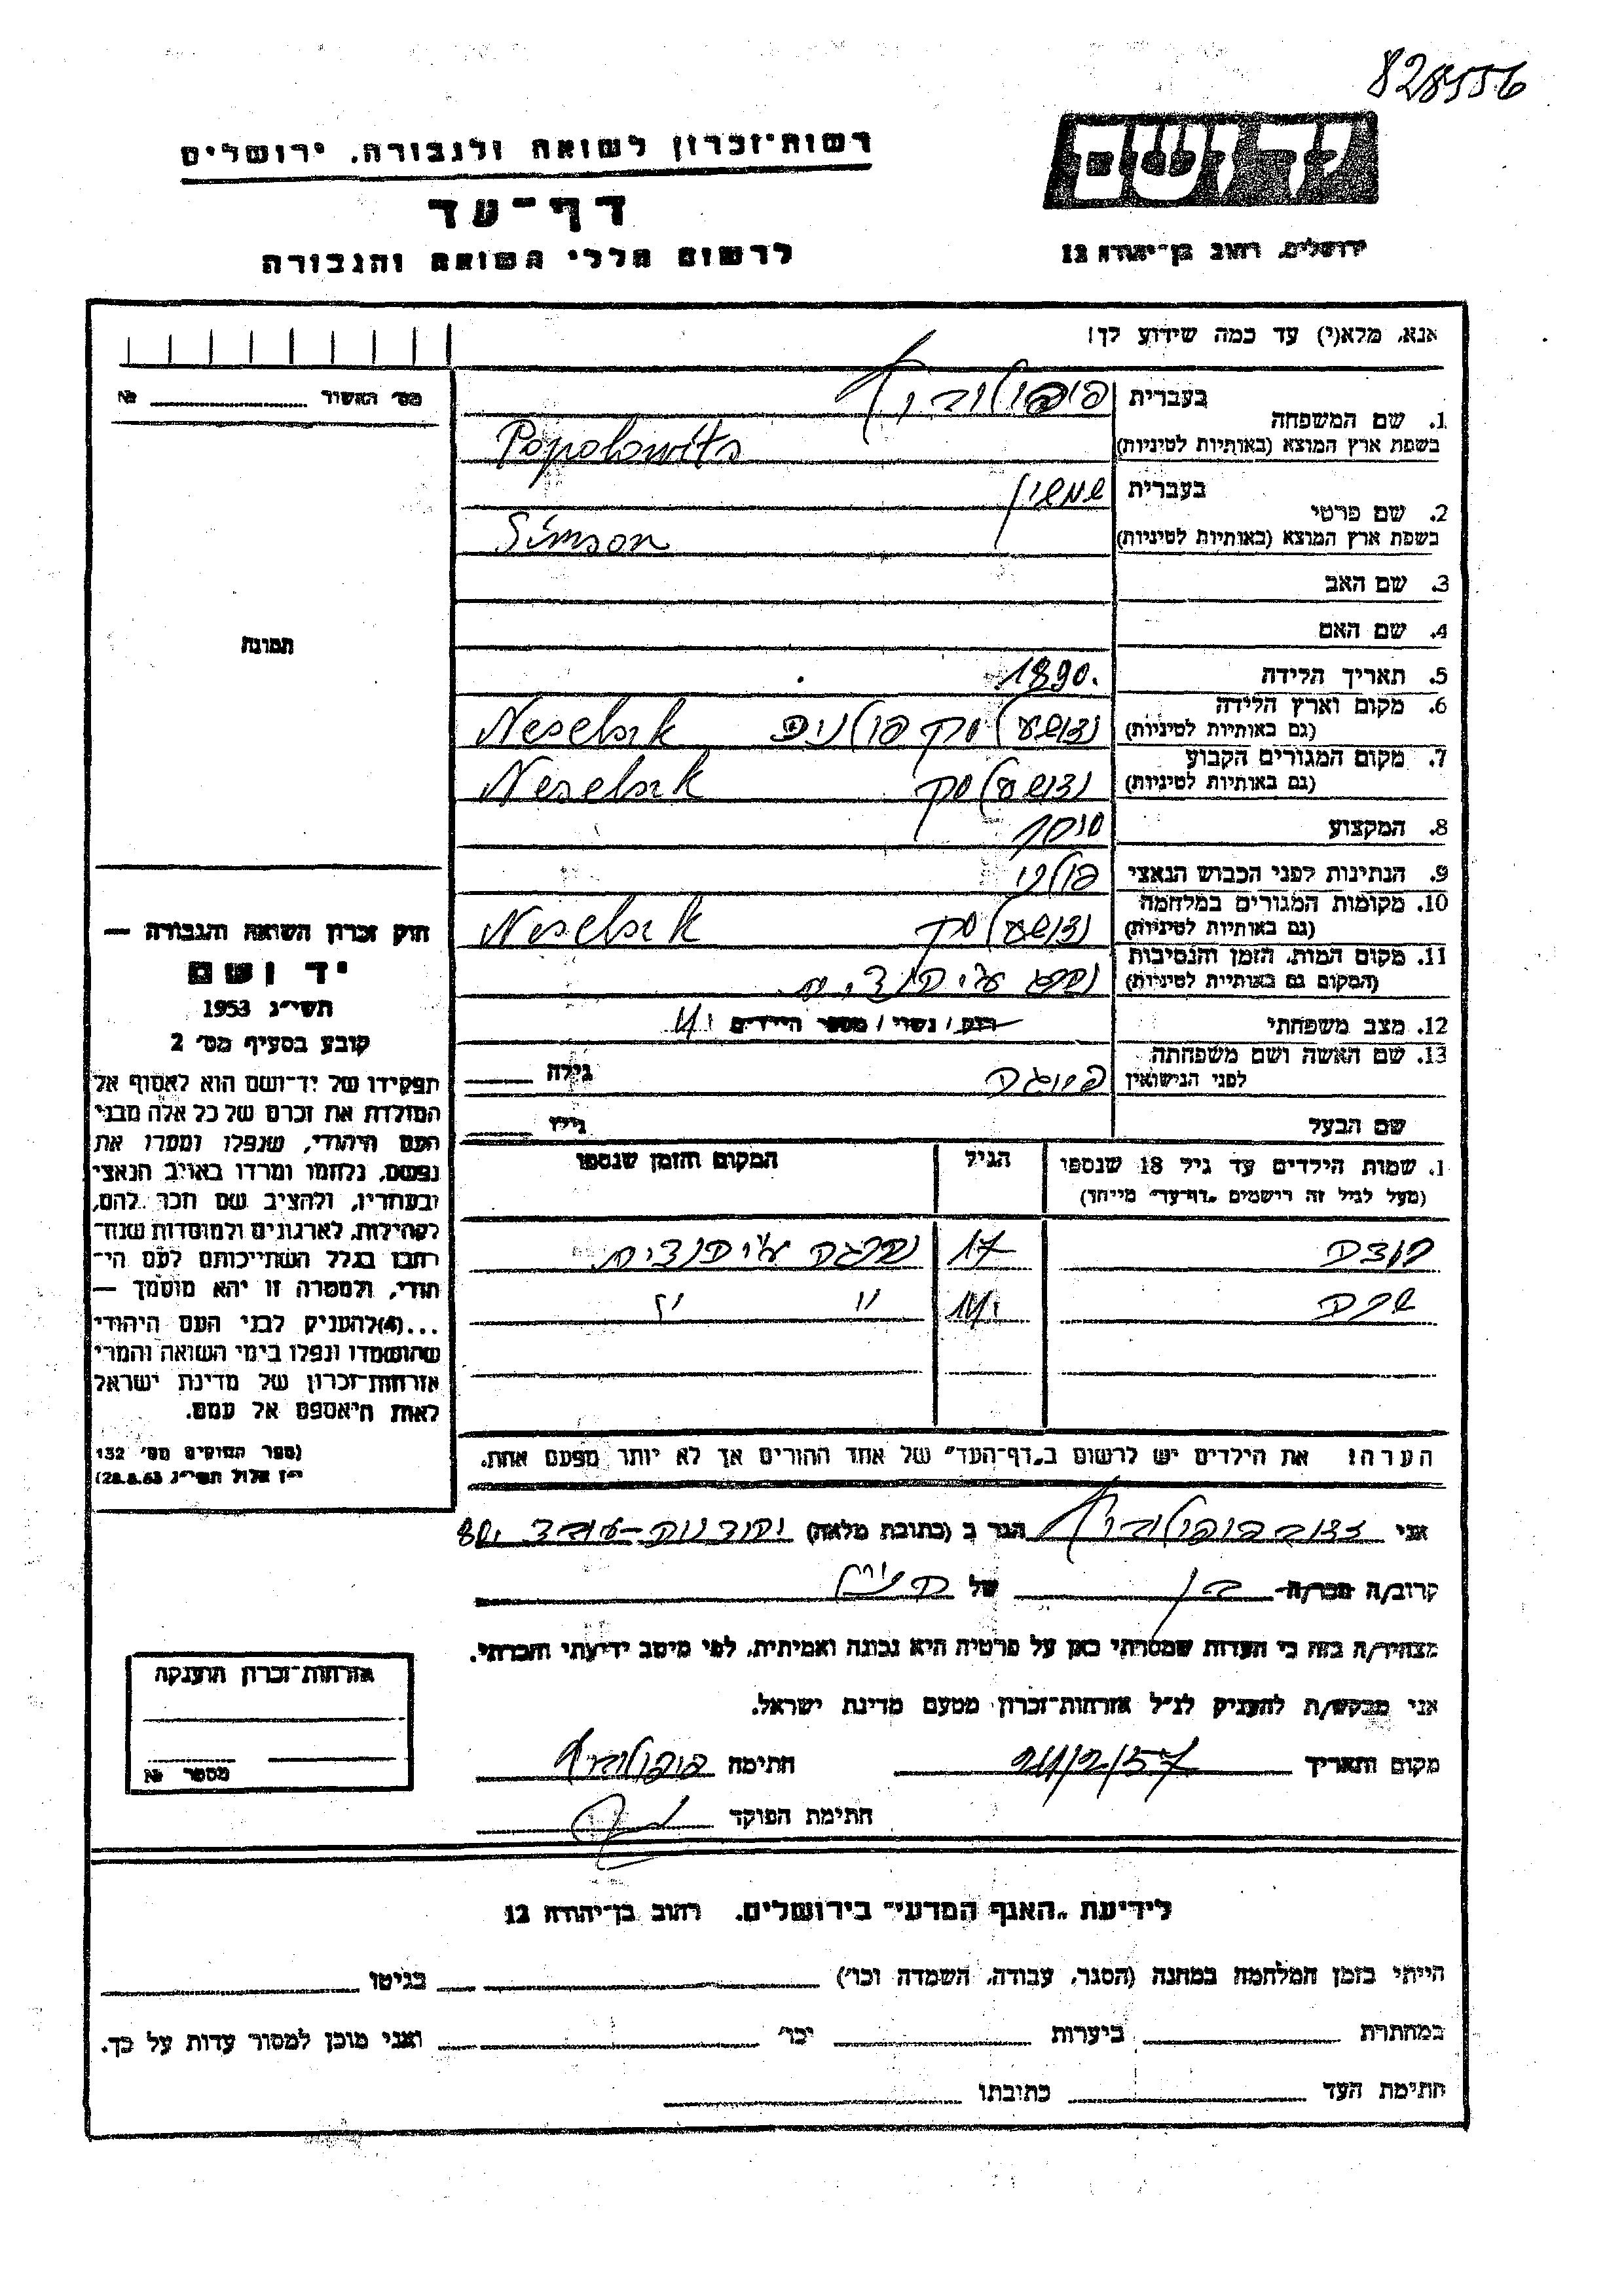 828556
יד ושם
ירושלים, רחוב בן־יהודה 12
רשות־זכרון לשואה ולגבורה, ירושלים
דף־עד
לרשום חללי השואה והגבורה
אנא, מלא(י) עד כמה שידוע לך!
מס׳ האשור № 
תמונה
1. שם המשפחה
בעברית פופולוביץ
בשפת ארץ המוצא (באותיות לטיניות) Popolowits
2. שם פרטי
בעברית שמשון
בשפת ארץ המוצא (באותיות לטיניות) Simson
3. שם האב
4. שם האם
5. תאריך הלידה 1890.
6. מקום וארץ הלידה
(גם באותיות לטיניות) פולניה Neselsk
7. מקום המגורים הקבוע
(גם באותיות לטיניות) Neselsk
8. המקצוע סוחר
9. הנתינות לפני הכבוש הנאצי פולני
10. מקומות המגורים במלחמה
(גם באותיות לטיניות) Neselsk
11. מקום המות, הזמן והנסיבות
(המקום גם באותיות לטיניות)
12. מצב משפחתי רוק / נשוי / מספר הילדים
13. שם האשה ושם משפחתה
לפני הנישואין גילה
שם הבעל גילו
1. שמות הילדים עד גיל 18 שנספו הגיל המקום והזמן שנספו
(מעל לגיל זה רישמים „דף־עד" מייחד)
17
הערה! את הילדים יש לרשום ב„דף־העד" של אחד ההורים אך לא יותר מפעם אחת.
אני פופולוביץ הגר ב (כתובת מלאה)
קרוב/ה מכר/ה בן של
מצהיר/ה בזה כי העדות שמסרתי כאן על פרטיה היא נכונה ואמיתית, לפי מיטב ידיעתי והכרתי.
אני מבקש/ת להעניק לנ״ל אזרחות־זכרון מטעם מדינת ישראל.
מקום ותאריך חתימה פופולוביץ
חתימת הפוקד
חוק זכרון השואה והגבורה —
יד ושם
תשי״ג 1953
קובע בסעיף מס׳ 2
תפקידו של יד־ושם הוא לאסוף אל
המולדת את זכרם של כל אלה מבני
העם היהודי, שנפלו ומסרו את
נפשם, נלחמו ומרדו באויב הנאצי
ובעוזריו, ולהציב שם וזכר להם,
לקהילות, לארגונים ולמוסדות שנח־
רבו בגלל השתייכותם לעם הי־
הודי, ולמטרה זו יהא מוסמך —
...(4)להעניק לבני העם היהודי
שהושמדו ונפלו בימי השואה והמרי
אזרחות־זכרון של מדינת ישראל
לאות היאספם אל עמם.
(ספר החוקים מס׳ 132
י״ז אלול תשי״ג 28.8.53)
אזרחות־זכרון הוענקה
מספר №
לידיעת „האגף המדעי" בירושלים. רחוב בן־יהודה 12
הייתי בזמן המלחמה במחנה (הסגר, עבודה, השמדה וכו׳) בגיטו
במחתרת ביערות וכו׳ ואני מוכן למסור עדות על כך.
חתימת העד כתובתו